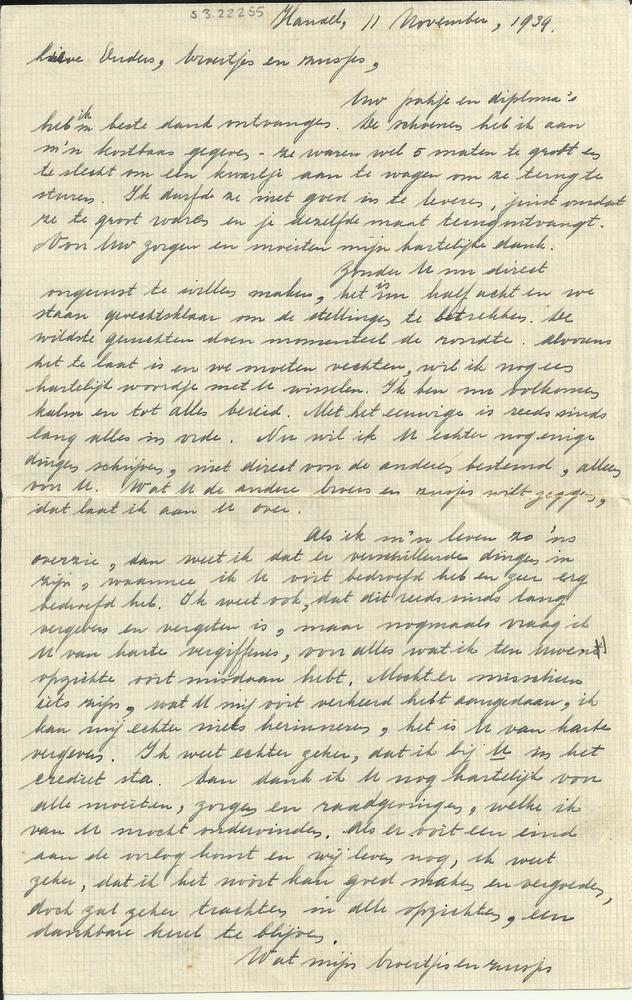 S 3.22255
Handel, 11 November, 1939.
Lieve Ouders, broertjes en zusjes,
Uw pakje en diploma's
heb ik in beste dank ontvangen. De schoenen heb ik aan
m'n kostbaas gegeven - ze waren wel 5 maten te groot en
te slecht om een kwartje aan te wagen om ze terug te
sturen. Ik durfde ze niet goed in te leveren, juist omdat
ze te groot waren en je dezelfde maat terugontvangt.
Voor Uw zorgen en moeiten mijn hartelijke dank.
Zonder U nu direct
ongerust te willen maken, het is nu half acht en we
staan gevechtsklaar om de stellingen te betrekken. De
wildste geruchten doen momenteel de rondte. Alvorens
het te laat is en we moeten vechten, wil ik nog een
hartelijk woordje met U wisselen. Ik ben nu volkomen
kalm en tot alles bereid. Met het eeuwige is reeds sinds
lang alles in orde. Nu wil ik U echter nog enige
dingen schrijven, niet direct voor de anderen bestemd, alleen
voor U. Wat U de andere broers en zusjes wilt zeggen,
dat laat ik aan U over.
Als ik m'n leven zo 'ns
overzie, dan weet ik dat er verschillende dingen in
zijn, waarmee ik U ooit bedroefd heb en zeer erg
bedroefd heb. Ik weet ook, dat dit reeds sinds lang
vergeven en vergeten is, maar nogmaals vraag ik
U van harte vergiffenis, voor alles wat ik ten Uwent
opzichte ooit misdaan hebt. Mocht er misschien
iets zijn, wat U mij ooit verkeerd hebt aangedaan, ik
kan mij echter niets herinneren, het is U van harte
vergeven. Ik weet echter zeker, dat ik bij U in het
crediet sta. Dan dank ik U nog hartelijk voor
alle moeiten, zorgen en raadgevingen, welke ik
van U mocht ondervinden. Als er ooit een eind
aan de oorlog komt en wij leven nog, ik weet
zeker, dat ik het nooit kan goed maken en vergoeden,
doch zal zeker trachten in alle opzichten, een
dankbare heul te blijven.
Wat mijn broertjes en zusjes